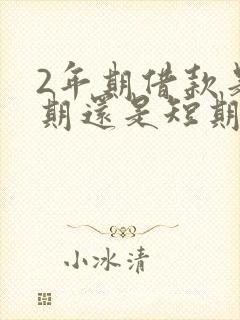 2年期借款是
期還是短期
小冰清